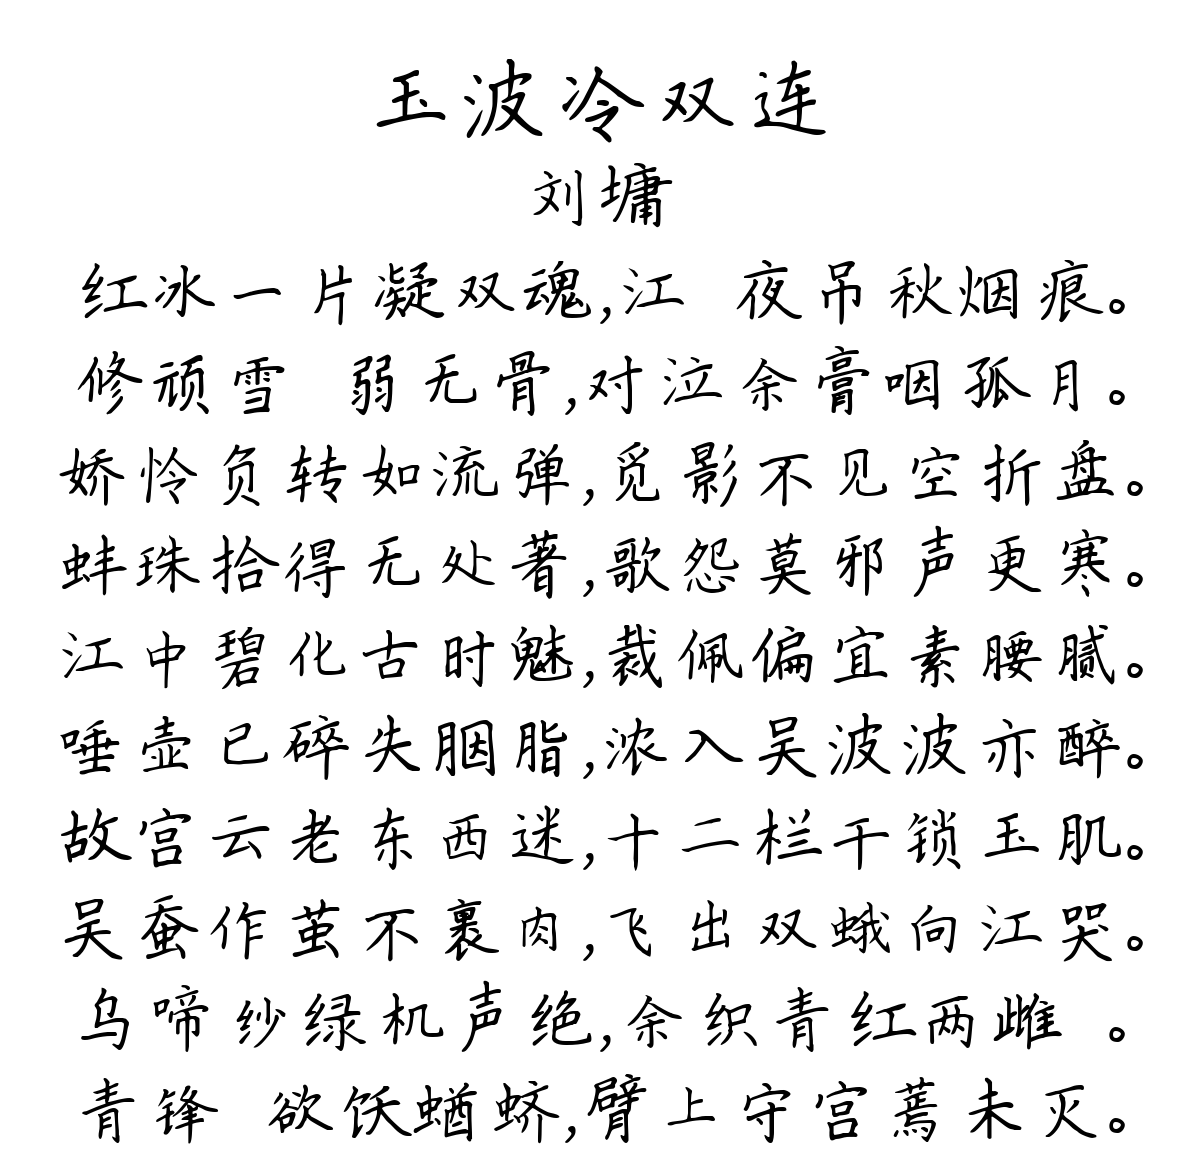 玉波冷双连
刘墉
红冰一片凝双魂,江 夜吊秋烟痕。
修顽雪 弱无骨,对泣余膏咽孤月。
娇怜负转如流弹,觅影不见空折盘。
蚌珠拾得无处著,歌怨莫邪声更寒。
江中碧化古时魅,裁佩偏宜素腰腻。
唾壶已碎失胭脂,浓入吴波波亦醉。
故宫云老东西迷,十二栏干锁玉肌。
吴蚕作茧不裹肉,飞出双蛾向江哭。
乌啼纱绿机声绝,余织青红两雌 。
青锋 欲饫蝤蛴,臂上守宫蔫未灭。